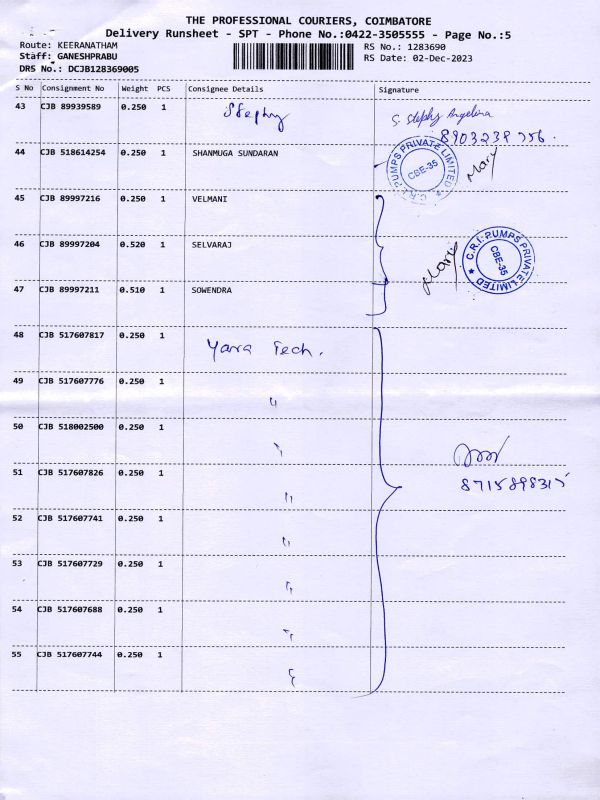 THE PROFESSIONAL COURIERS, COIMBATORE
Delivery Runsheet - SPT - Phone No.:0422-3505555 - Page No.:5
Route: KEERANATHAM
RS No.: 1283690
Staff: GANESHPRABU
RS Date: 02-Dec-2023
DRS No.: DCJB128369005
S No Consignment No Weight PCS Consignee Details Signature
43 CJB 89939589 0.250 1 Stephy S. Stephy Angelina
8903238756.
44 CJB 518614254 0.250 1 SHANMUGA SUNDARAN Mary
C.R.I. PUMPS PRIVATE LIMITED
CBE-35
45 CJB 89997216 0.250 1 VELMANI
46 CJB 89997204 0.520 1 SELVARAJ Mary
C.R.I. PUMPS PRIVATE LIMITED
CBE-35
47 CJB 89997211 0.510 1 SOWENDRA
48 CJB 517607817 0.250 1 Yarra Tech.
49 CJB 517607776 0.250 1 "
50 CJB 518002500 0.250 1 "
51 CJB 517607826 0.250 1 "
8715898315
52 CJB 517607741 0.250 1 "
53 CJB 517607729 0.250 1 "
54 CJB 517607688 0.250 1 "
55 CJB 517607744 0.250 1 "